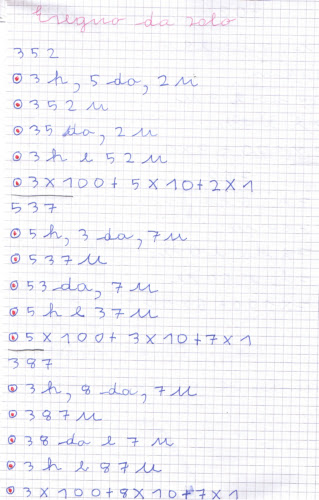 Eseguo da solo
352
3 h, 5 da, 2 u
352 u
35 da, 2 u
3 h e 52 u
3 x 100 + 5 x 10 + 2 x 1
537
5 h, 3 da, 7 u
537 u
53 da, 7 u
5 h e 37 u
5 x 100 + 3 x 10 + 7 x 1
387
3 h, 8 da, 7 u
387 u
38 da e 7 u
3 h e 87 u
3 x 100 + 8 x 10 + 7 x 1